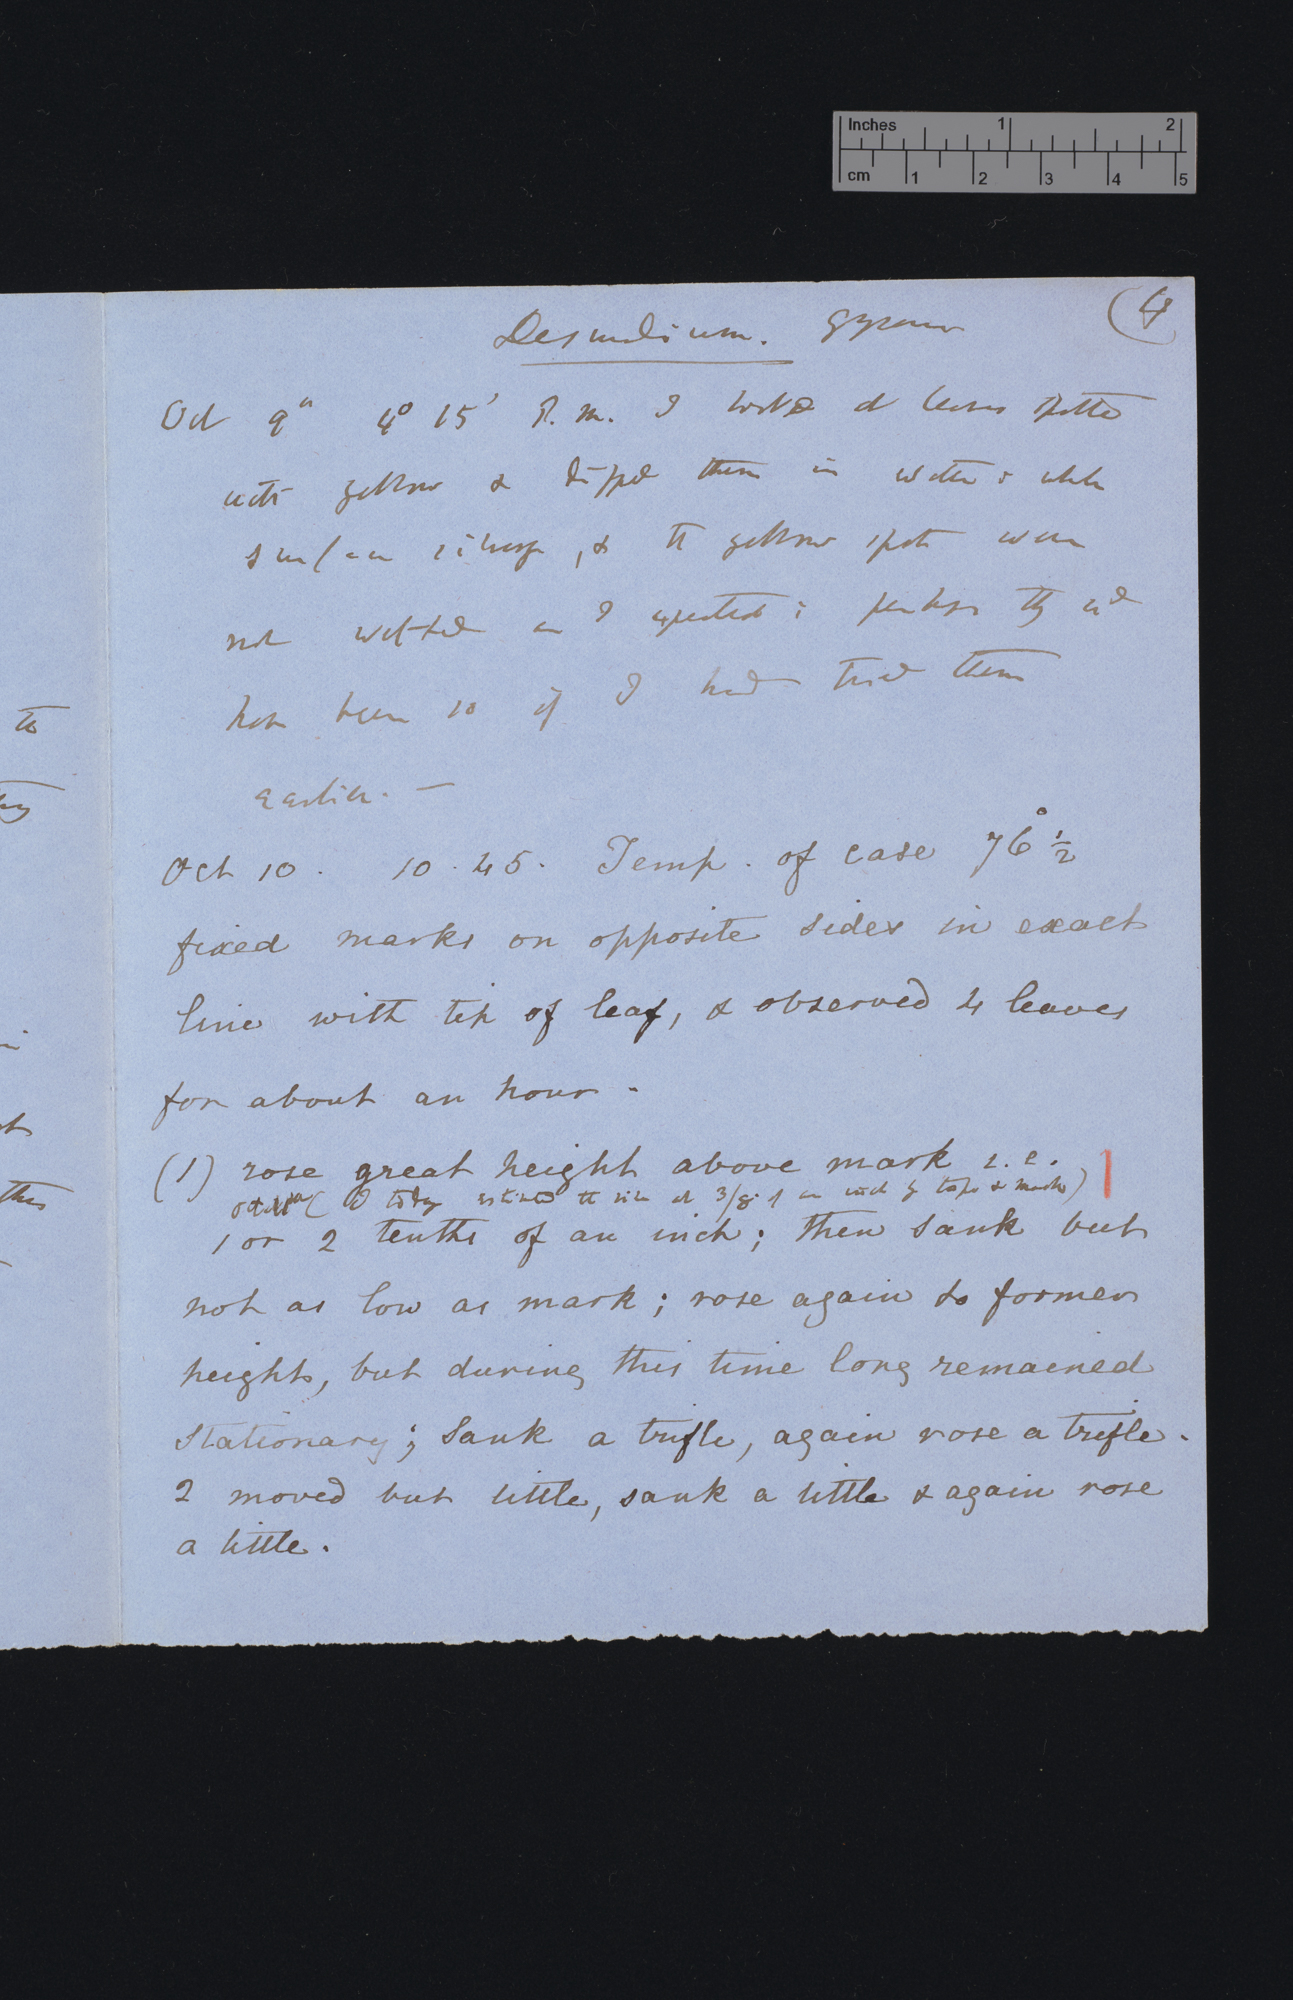 Inches 1 2
cm 1 2 3 4 5
(4
Desmodium. gyrans
Oct 9th 4° 15' P.m. I looked at leaves spotted
with yellow & dipped them in water; whole
surface silvery, & the yellow spots were
not wetted as I expected; perhaps they wd
have been so if I had tried them
earlier. —
Oct 10. 10.45. Temp. of case 76°½
fixed marks on opposite sides in exact
line with tip of leaf, & observed 4 leaves
for about an hour.
(1) rose great height above mark i.e.
(I today estimated the rise at 3/8 of an inch by tape & marks)
1 or 2 tenths of an inch; then sank but
not as low as mark; rose again to former
height, but during this time long remained
stationary; sank a trifle, again rose a trifle.
2 moved but little, sank a little & again rose
a little.
to